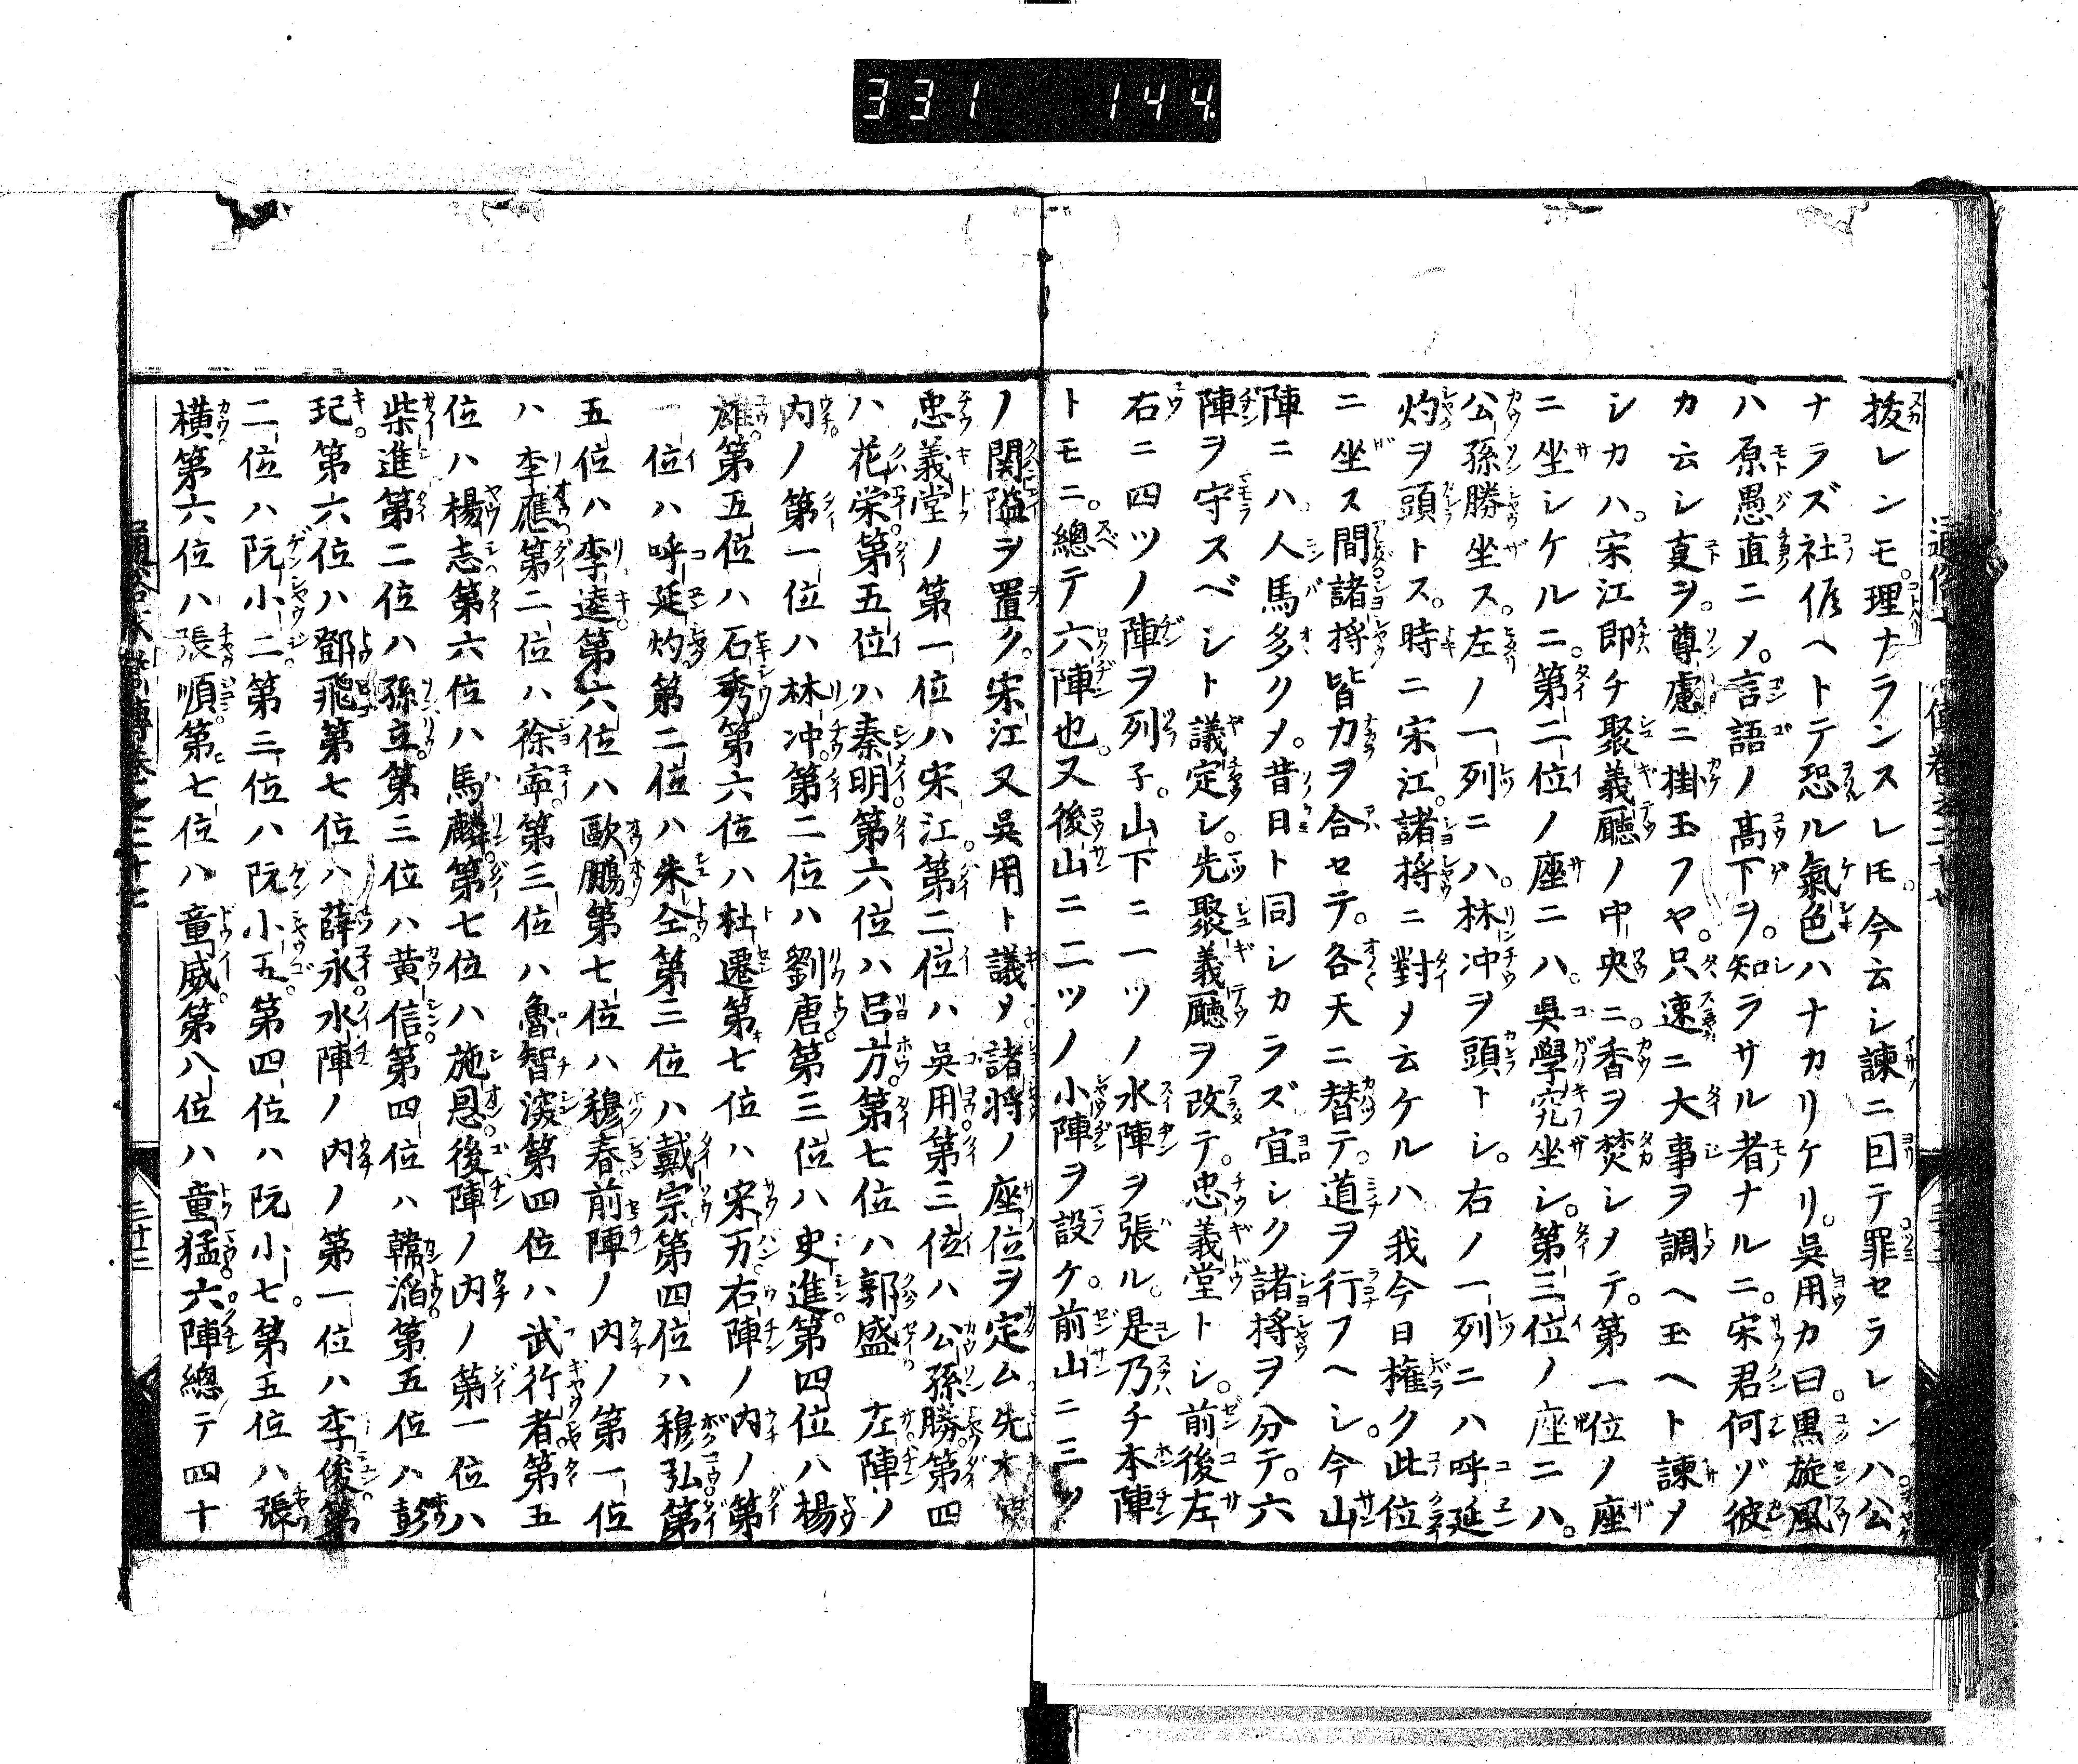 331 144
拔レンモ。理ナランスレ𪜈。今云シ諫ニ回テ罪セラレンハ。公
ナラズ社侭ヘトテ恐ル氣色ハナカリケリ。吳用カ曰。黒旋風
ハ原愚直ニメ。言語ノ髙下ヲ。知ラサル者ナルニ。宋君何ゾ彼
カ云シ亘ヲ。尊慮ニ掛玉フヤ。只速ニ大事ヲ調ヘ玉ヘト諫メ
シカハ。宋江即チ聚義廳ノ中央ニ。香ヲ焚シメテ。第一位ノ座
ニ坐シケルニ。第二位ノ座ニハ。吳學究坐シ。第三位ノ座ニハ。
公孫勝坐ス。左ノ一列ニハ。林冲ヲ頭トシ。右ノ一列ニハ呼延
灼ヲ頭トス。時ニ宋江。諸将ニ對メ云ケルハ我今日権ク此位
ニ坐ス間諸将皆カヲ合セテ。各天ニ替テ。道ヲ行フヘシ。今山
陣ニハ。人馬多クメ。昔日ト同シカラズ宜シク諸将ヲ分テ。六
陣ヲ守スベシト議定シ。先聚義廳ヲ改テ。忠義堂トシ。前後左
右ニ四ツノ陣ヲ列子。山下ニ一ツノ水陣ヲ張ル。是乃チ本陣
トモニ。總テ六陣也。又後山ニ二ツノ小陣ヲ設ケ。前山ニ三ツ
ノ関隘ヲ置ク。宋江又吳用ト議メ。諸将ノ座位ヲ定ム先本陣
忠義堂ノ第一位ハ宋江。第二位ハ吳用。第三位ハ公孫勝。第四
ハ花栄。第五位ハ秦明。第六位ハ呂方。第七位ハ郭盛 左陣ノ
内ノ第一位ハ林冲。第二位ハ劉唐。第三位ハ史進。第四位ハ楊
雄。第五位ハ石秀。第六位ハ杜遷。第七位ハ宋万。右陣ノ内ノ第
一位ハ呼延灼。第二位ハ朱仝。第三位ハ戴宗。第四位ハ穆弘。第
五位ハ李逵。第六位ハ歐鵬。第七位ハ穆春。前陣ノ内ノ第一位
ハ李應。第二位ハ徐寧。第三位ハ魯智深。第四位ハ武行者。第五
位ハ楊志。第六位ハ馬麟。第七位ハ施恩。後陣ノ内ノ第一位ハ
柴進。第二位ハ孫立。第三位ハ黄信。第四位ハ韓滔。第五位ハ彭
玘。第六位ハ鄧飛。第七位ハ薛永。水陣ノ内ノ第一位ハ李俊。第
二位ハ阮小二。第三位ハ阮小五。第四位ハ阮小七。第五位ハ張
横。第六位ハ張順。第七位ハ童威。第八位ハ童猛。六陣總テ四十
通俗水滸傳卷之二十七
三十三